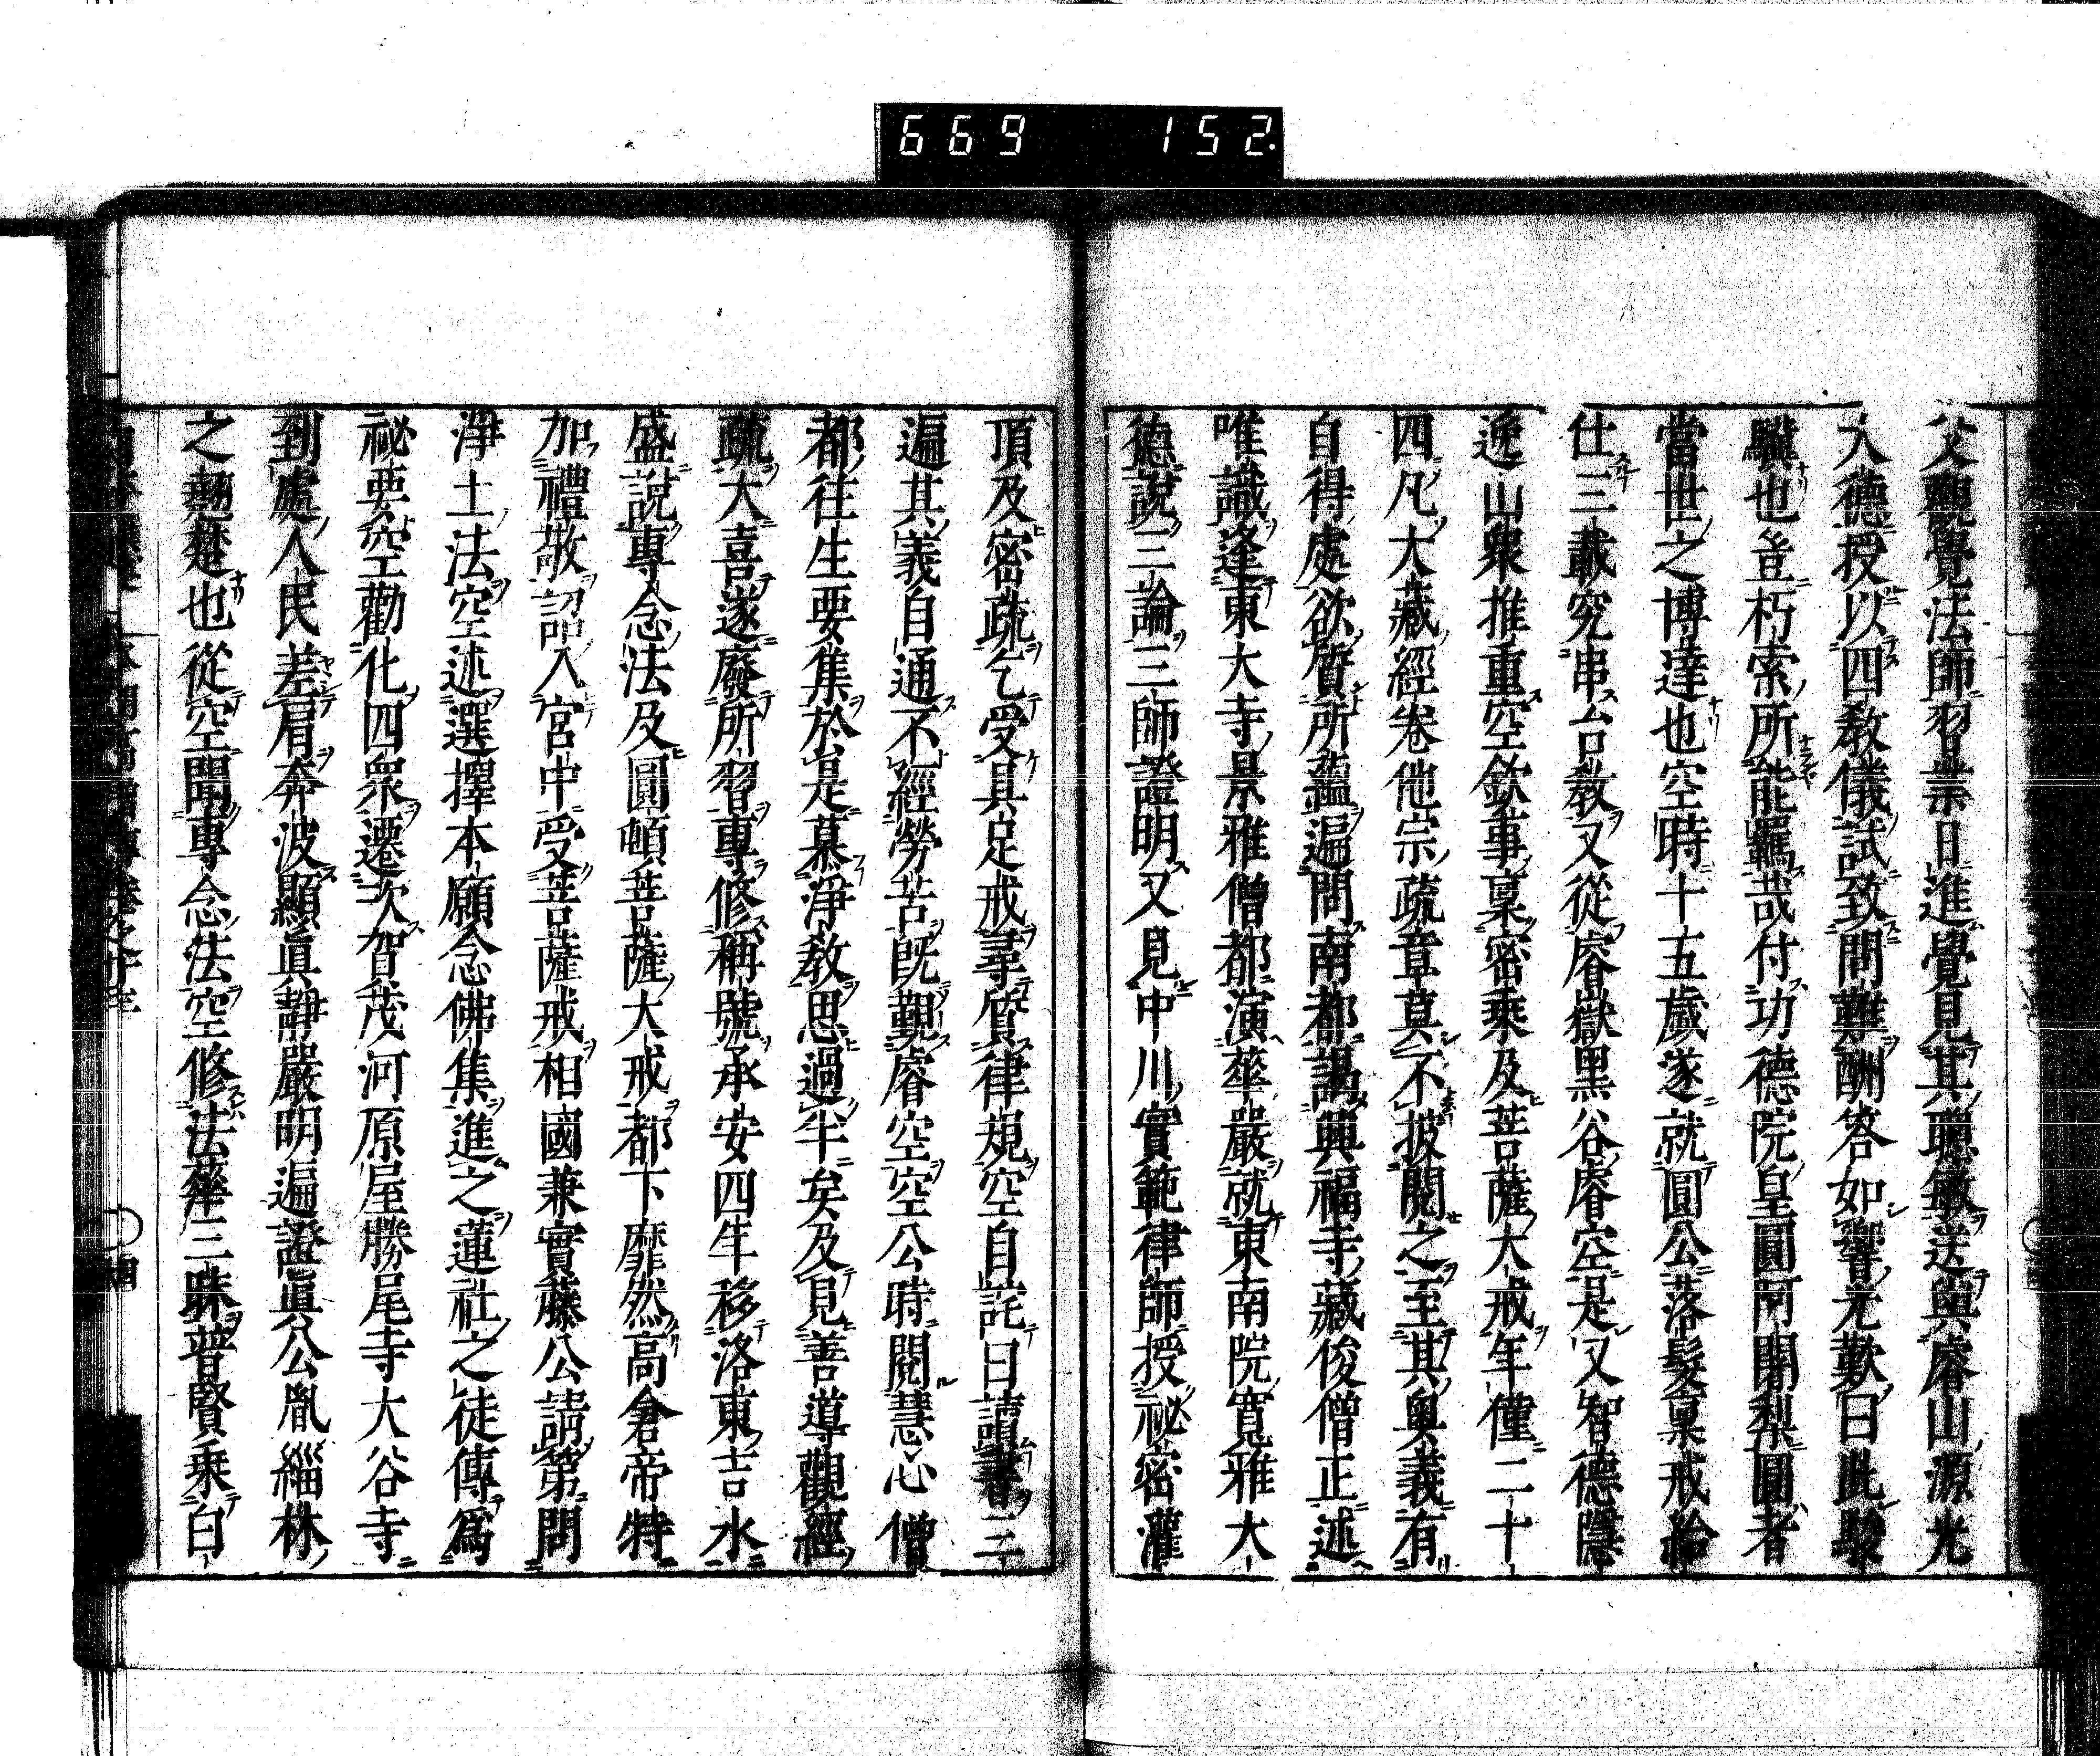 669 152.
父觀覺法師習業日進覺見其聰敏送與睿山源光
入德授以四教儀試致問難酬答如響光歎曰此駿
驥也豈朽索所能羈哉付功德院皇圓阿闍梨圓者
當世之博達也空時十五歲遂就圓公落髮稟戒給
仕三載究串台教又從睿嶽黑谷睿空是又智德隱
逸山衆推重空欽事稟密乘及菩薩大戒年僅二十
四凡大藏經卷他宗疏章莫不披閱之至其奧義有
自得處欲質所蘊遍問南都謁興福寺藏俊僧正述
唯識逢東大寺景雅僧都演華嚴就東南院寬雅大
德說三論三師證明又見中川實範律師授祕密灌
頂及密疏乞受具足戒尋質律規空自詫曰讀書三
遍其義自通不經勞苦既覲睿空空公時閱慧心僧
都往生要集於是慕淨教思過半矣及見善導觀經
疏大喜遂廢所習專修稱號承安四年移洛東吉水
盛說專念法及圓頓菩薩大戒都下靡然高倉帝特
加禮敬詔入宮中受菩薩戒相國兼實藤公請第問
淨土法空述選擇本願念佛集進之蓮社之徒傳爲
祕要空勸化四衆遷次賀茂河原屋勝尾寺大谷寺
到處人民差肩奔波顯真靜嚴明遍證眞公胤緇林
之翹楚也從空聞專念法空修法華三昧普賢乘白